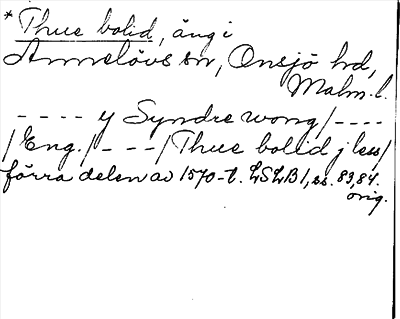 * Thue bolid, äng i
Annelövs sn, Onsjö hd,
Malm. l.
- - - - y Syndre wong/ - - - -
/Eng./ - - - /Thue bolid j less/
förra delen av 1570-t. LSLB 1, ss. 83, 84.
orig.